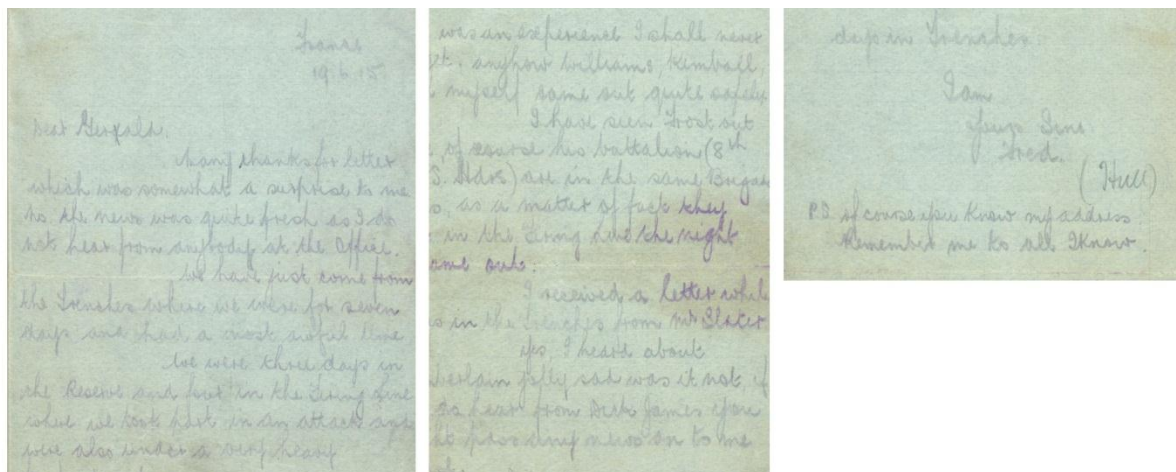 France
19.6.15.
Dear Gerxald.
Many thanks for letter
which was somewhat a surprise to me
the news was quite fresh as I do
not hear from anybody at the Office.
We have just come from
the Trenches where we were for seven
days and had a most awful time
We were three days in
the Reserve and four in the Firing Line
where we took part in an attack and
were also under a very heavy
was an experience I shall never
anyhow Williams, Kemball,
myself came out quite safely
I have seen Frost out
of course his battalion (8th
S. Hdrs) are in the same Brigade
as a matter of fact they
in the Firing Line the night
came out.
I received a letter whil
in the Trenches from Mr Slater
Yes, I heard about
berlain jolly sad was it not, if
hear from Dick James you
pass any news on to me
days in Trenches.
I am
Yours Sinc
Fred.
(Hull)
P.S. of course you know my address
Remember me to all I know.